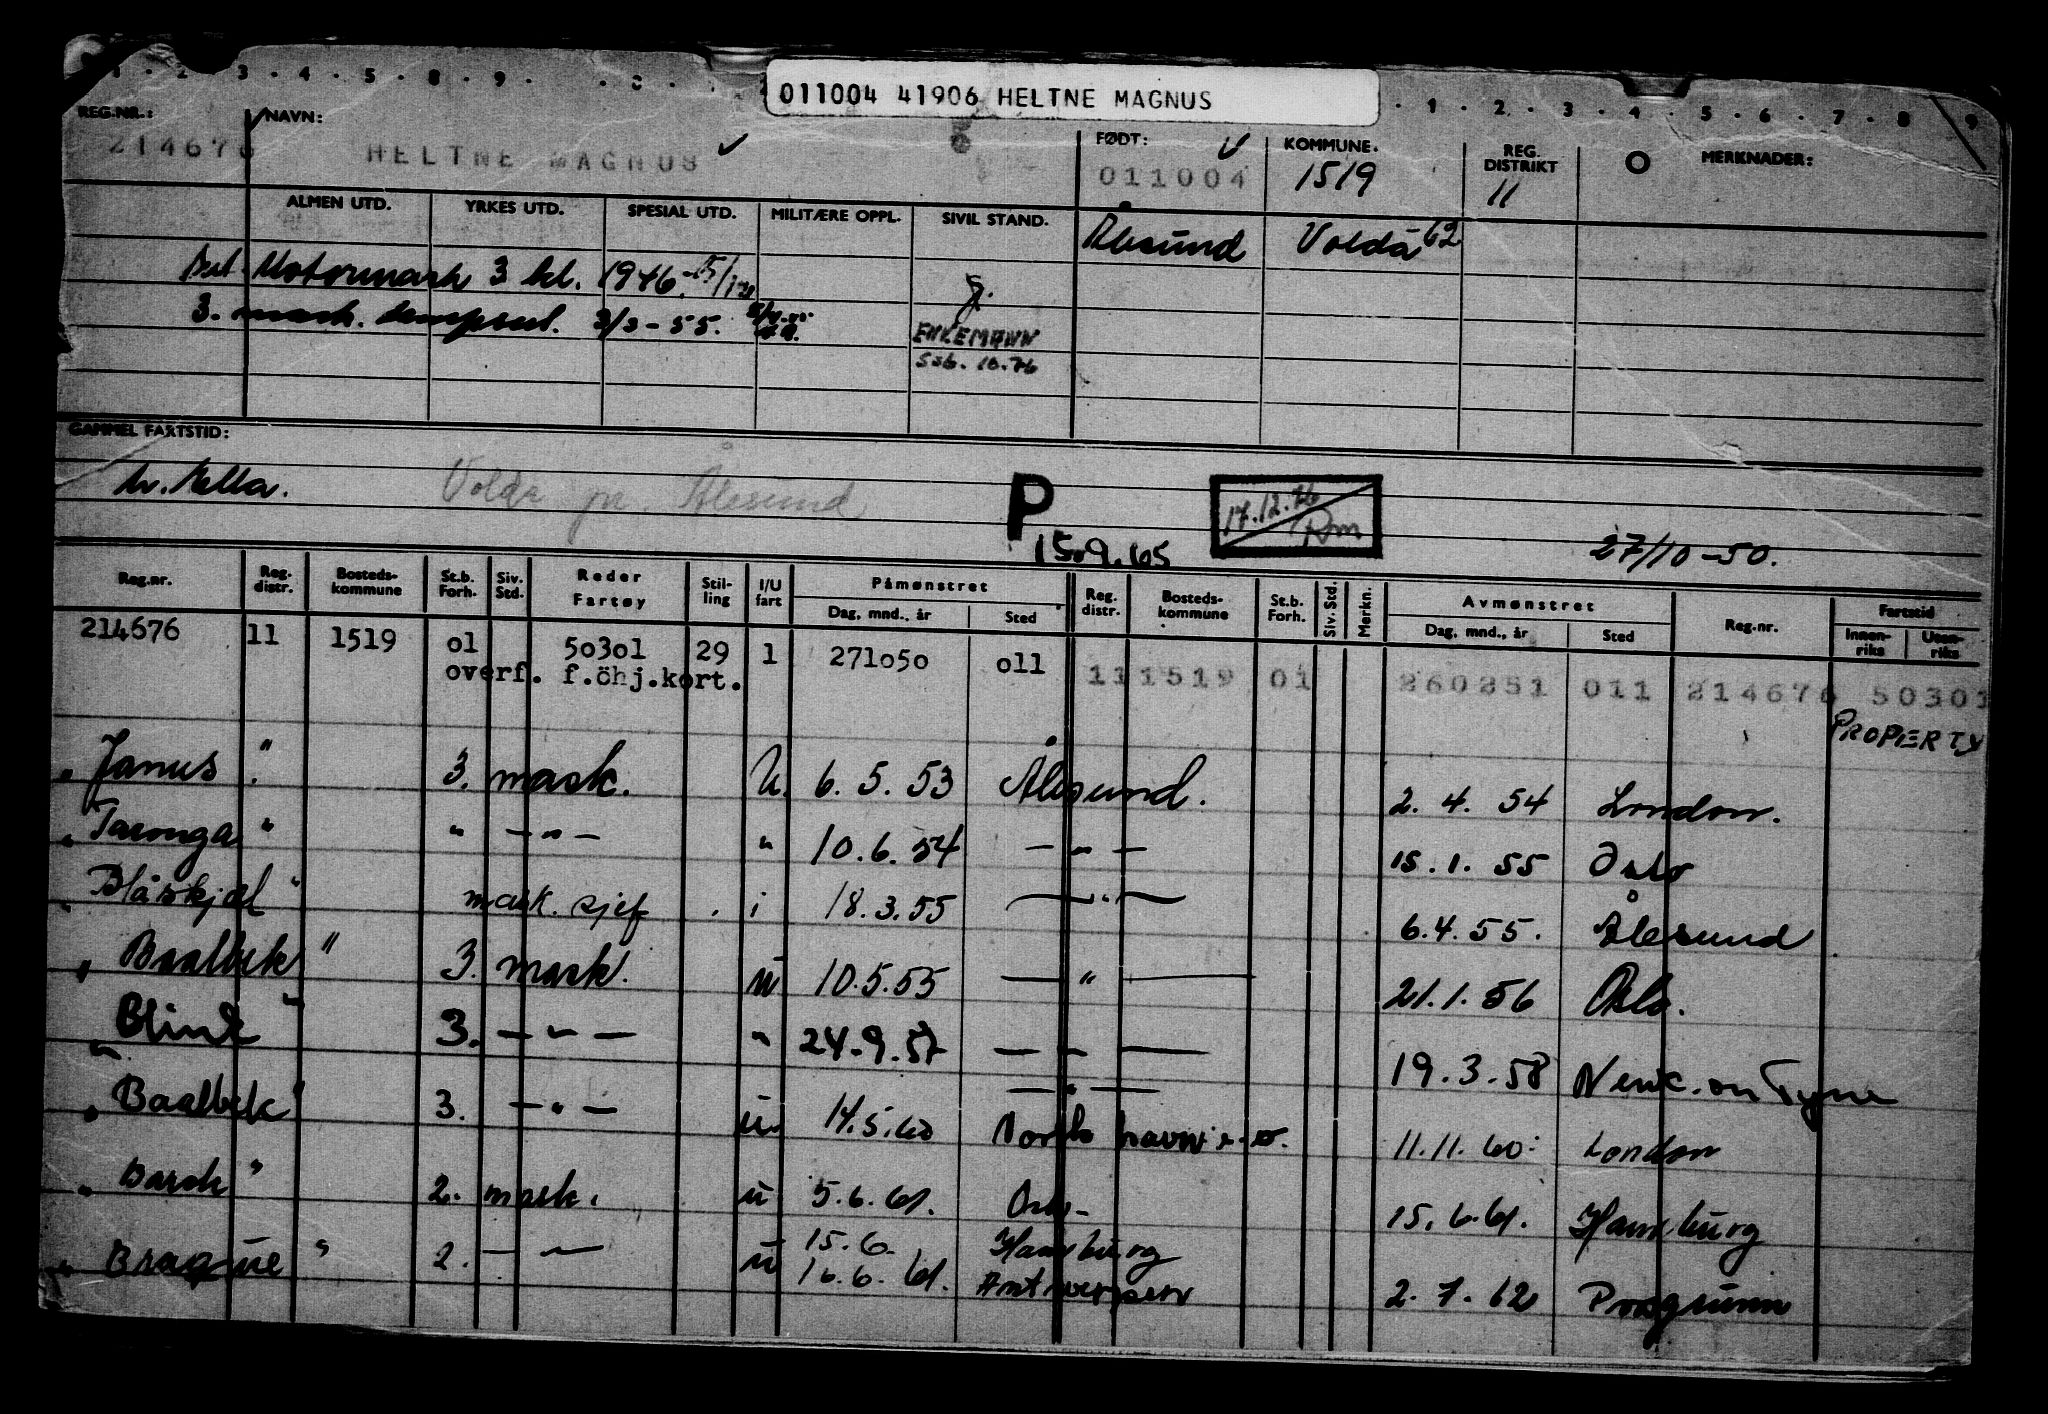 1 · 2 · 3 · 4 · 5 · 8 · 9 · · 1 · 2 · 3 · 4 · 5 · 6 · 7 · 8 · 9
011004 41906 HELTNE MAGNUS
REG.NR.: NAVN: FØDT: KOMMUNE. REG. DISTRIKT MERKNADER:
214676 HELTNE MAGNUS 011004 1519 11
ALMEN UTD. YRKES UTD. SPESIAL UTD. MILITÆRE OPPL. SIVIL STAND.
Ålesund Volda 62
Motormask 3 kl. 1946 g.
3. mask. 3/3-55.
ENKEMANN
SSB. 10.76
GAMMEL FARTSTID:
Volda pr. Ålesund
P
15.9.65
17.12.76
27/10-50.
Reg.nr. Reg. distr. Bosteds-kommune St.b. Forh. Siv. Std. Reder Fartøy Stil-ling I/U fart Påmønstret Reg. distr. Bosteds-kommune St.b. Forh. Siv. Std. Merkn. Avmønstret Reg.nr. Fartstid
Dag, mnd., år Sted Dag, mnd., år Sted Innen-riks Uten-riks
214676 11 1519 01 50301 29 1 271050 011 11 1519 01 260251 011 214676 50301
overf. f.öhj.kort.
PROPERTY
" Janus " 3. mask. U. 6. 5. 53 Ålesund. 2. 4. 54 London.
" Taronga " " — " — " 10.6.54 — " — 15.1.55 Oslo
" Blåskjel " mask. sjef i 18.3.55 — " — 6.4.55. Ålesund
" Baalbek " 3. mask. u 10.5.55 — " — 21.1.56 Oslo.
" Blink " 3. — " — " 24.9.57 — " — 19.3.58 Newc. on Tyne
— " —
" Baalbek " 3. — " — u. 14.5.60 Norsk havn 11.11.60. London
" Barok " 2. mask. u 5.6.61. Oslo 15.6.61. Hamburg
" Braque " 2. — " — u 15.6. Hamburg
16.6.61. Antwerpen 2.7.62 Porsgrunn